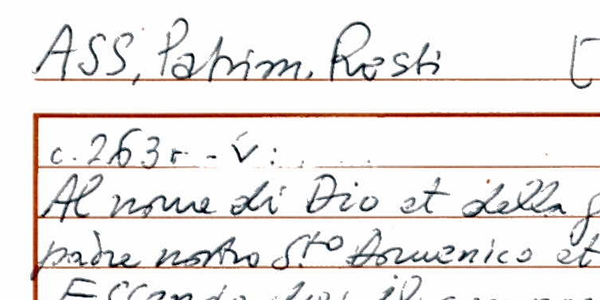 ASS, Patrim. Resti [
c. 263r - v:
Al nome di Dio et della g
padre nostro Sto Domenico et
Essendo